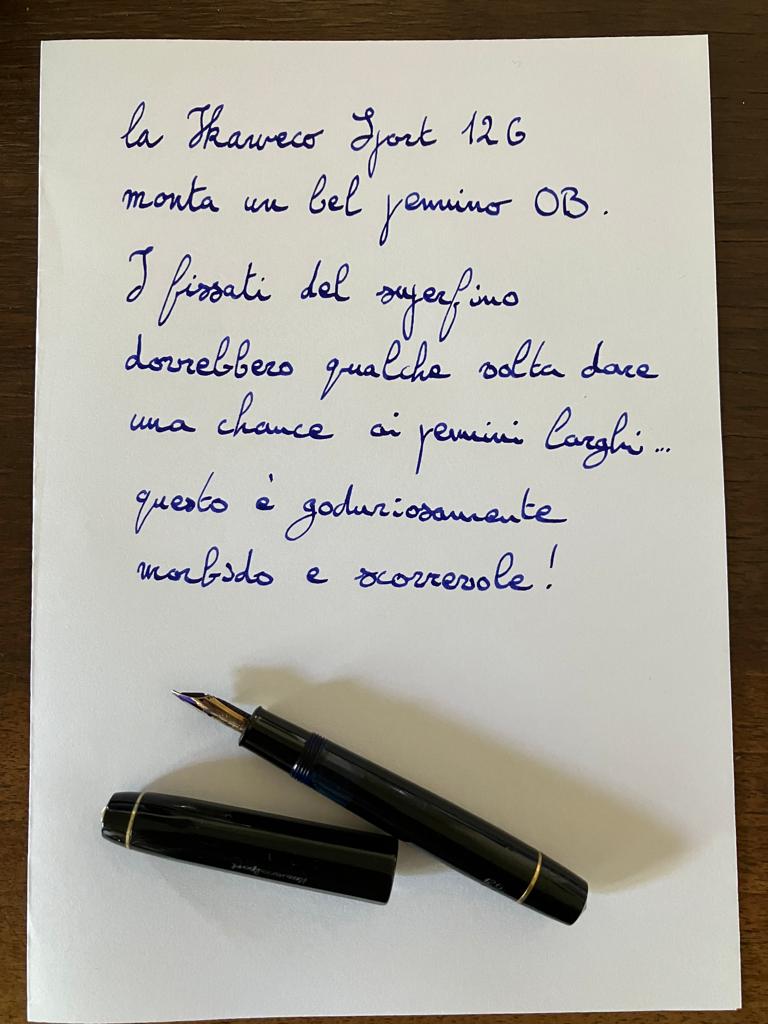 la Kaweco Sport 12G
monta un bel pennino OB.
I fissati del superfino
dovrebbero qualche volta dare
una chance ai pennini larghi...
questo è goduriosamente
morbido e scorrevole!
Kaweco Sport